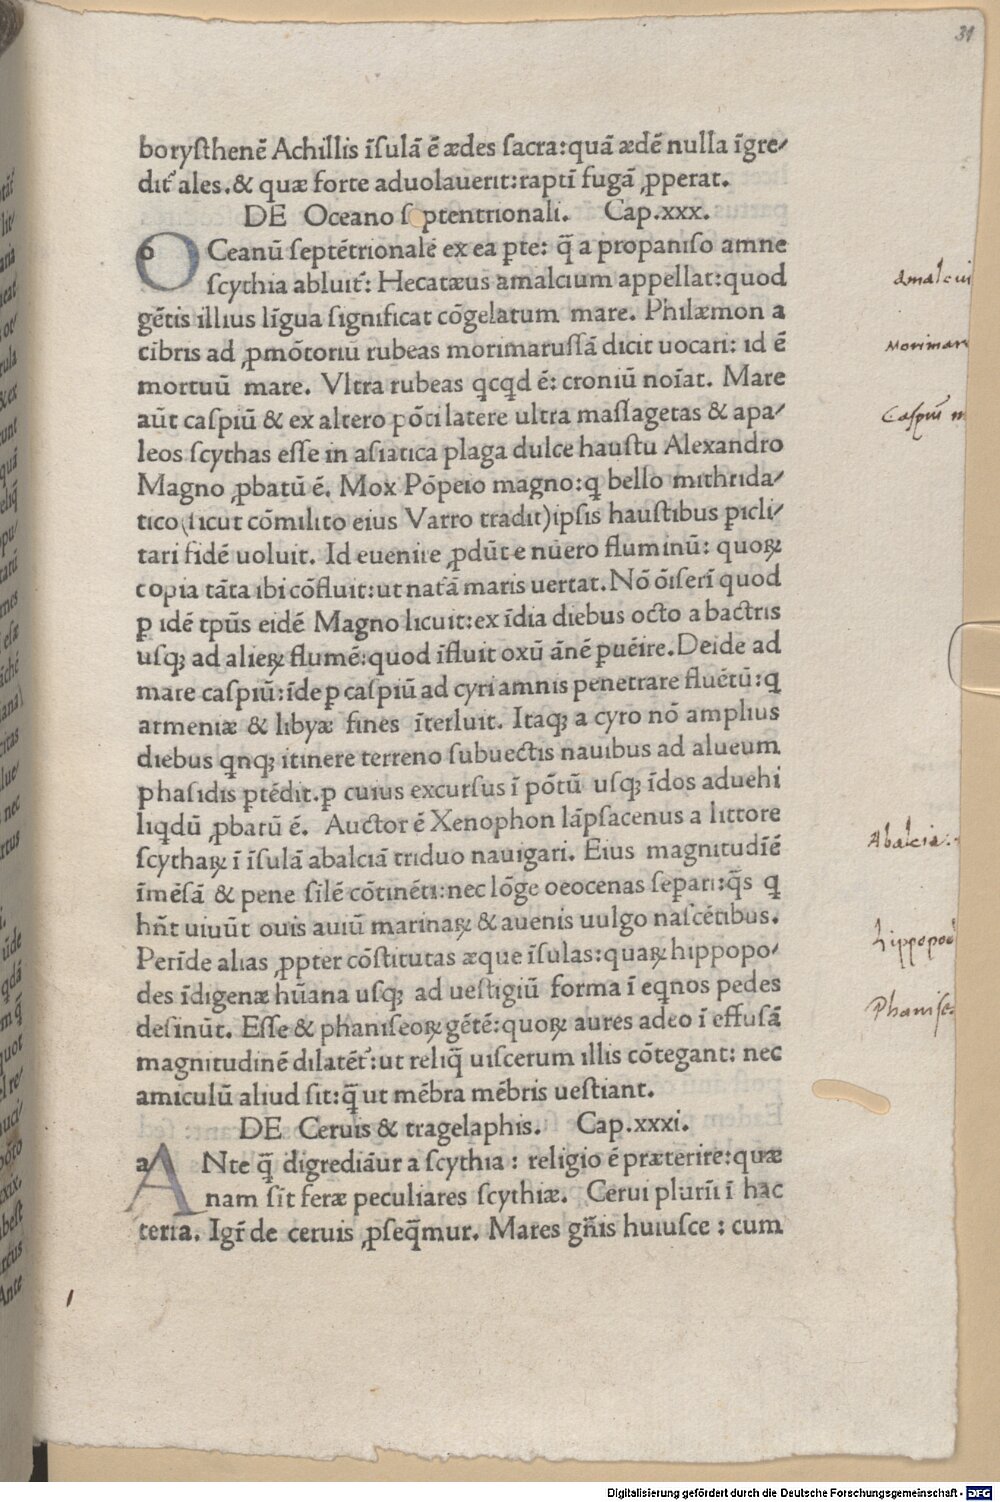 31
borysthenē Achillis īsulā ē ædes sacra:quā ædē nulla īgre⸗
dit᷑ ales.& quæ forte aduolauerit:raptī fugā ꝓperat.
DE Oceano s ptentrionali. Cap.xxx.
OCeanū septētrionalē ex ea pte: q̄ a propaniso amne
scythia abluit᷑: Hecatæus amalcium appellat:quod
gētis illius līgua significat cōgelatum mare. Philæmon a
cibris ad ꝓmōtoriū rubeas morimarussā dicit uocari: id ē
mortuū mare. Vltra rubeas qcqd ē: croniū noīat. Mare
aūt caspiū & ex altero pōti latere ultra massagetas & apa⸗
leos scythas esse in asiatica plaga dulce haustu Alexandro
Magno ꝓbatū ē. Mox Pōpeio magno:q bello mithrida⸗
tico(sicut cōmilito eius Varro tradit)ipsis haustibus picli⸗
tari fidē uoluit. Id euenire ꝓdūt e nūero fluminū: quoꝝ
copia tāta ibi cōfluit:ut natā maris uertat.Nō ōiserī quod
ꝑ idē tpūs eidē Magno licuit:ex īdia diebus octo a bactris
usqꝫ ad alieꝝ flumē:quod īfluit oxū ānē puēire.Deide ad
mare caspiū:īde ꝑ caspiū ad cyri amnis penetrare fluētū:q
armeniæ & libyæ fines īterluit. Itaqꝫ a cyro nō amplius
diebus qnqꝫ itinere terreno subuectis nauibus ad alueum
phasidis ptēdit.ꝑ cuius excursus ī pōtū usqꝫ īdos aduehi
liqdū ꝓbatū ē. Auctor ē Xenophon lāpsacenus a littore
scythaꝝ ī īsulā abalciā triduo nauigari. Eius magnitudīē
īmēsā & pene silē cōtinēti:nec lōge oeocenas separi:q̄s q
hn̄t uiuūt ouis auiū marinaꝝ & auenis uulgo nascētibus.
Perīde alias ꝓpter cōstitutas æque īsulas:quaꝝ hippopo⸗
des īdigenæ hūana usqꝫ ad uestigiū forma ī eqnos pedes
desinūt. Esse & phaniseoꝝ gētē:quoꝝ aures adeo ī effusā
magnitudinē dilatēt᷑:ut reliq̄ uiscerum illis cōtegant: nec
amiculū aliud sit:q̄ ut mēbra mēbris uestiant.
DE Ceruis & tragelaphis. Cap.xxxi.
ANte q̄ digrediāur a scythia : religio ē præterire:quæ
nam sīt feræ peculiares scythiæ. Cerui plurīi ī hac
terra. Igr̄ de ceruis ꝓseq̄mur. Mares gn̄is huiusce : cum
Amalciu
Morimaru
Caspiū m
Abalcia.
Hippopod
Phanise
Digitalisierung gefördert durch die Deutsche Forschungsgemeinschaft - DFG